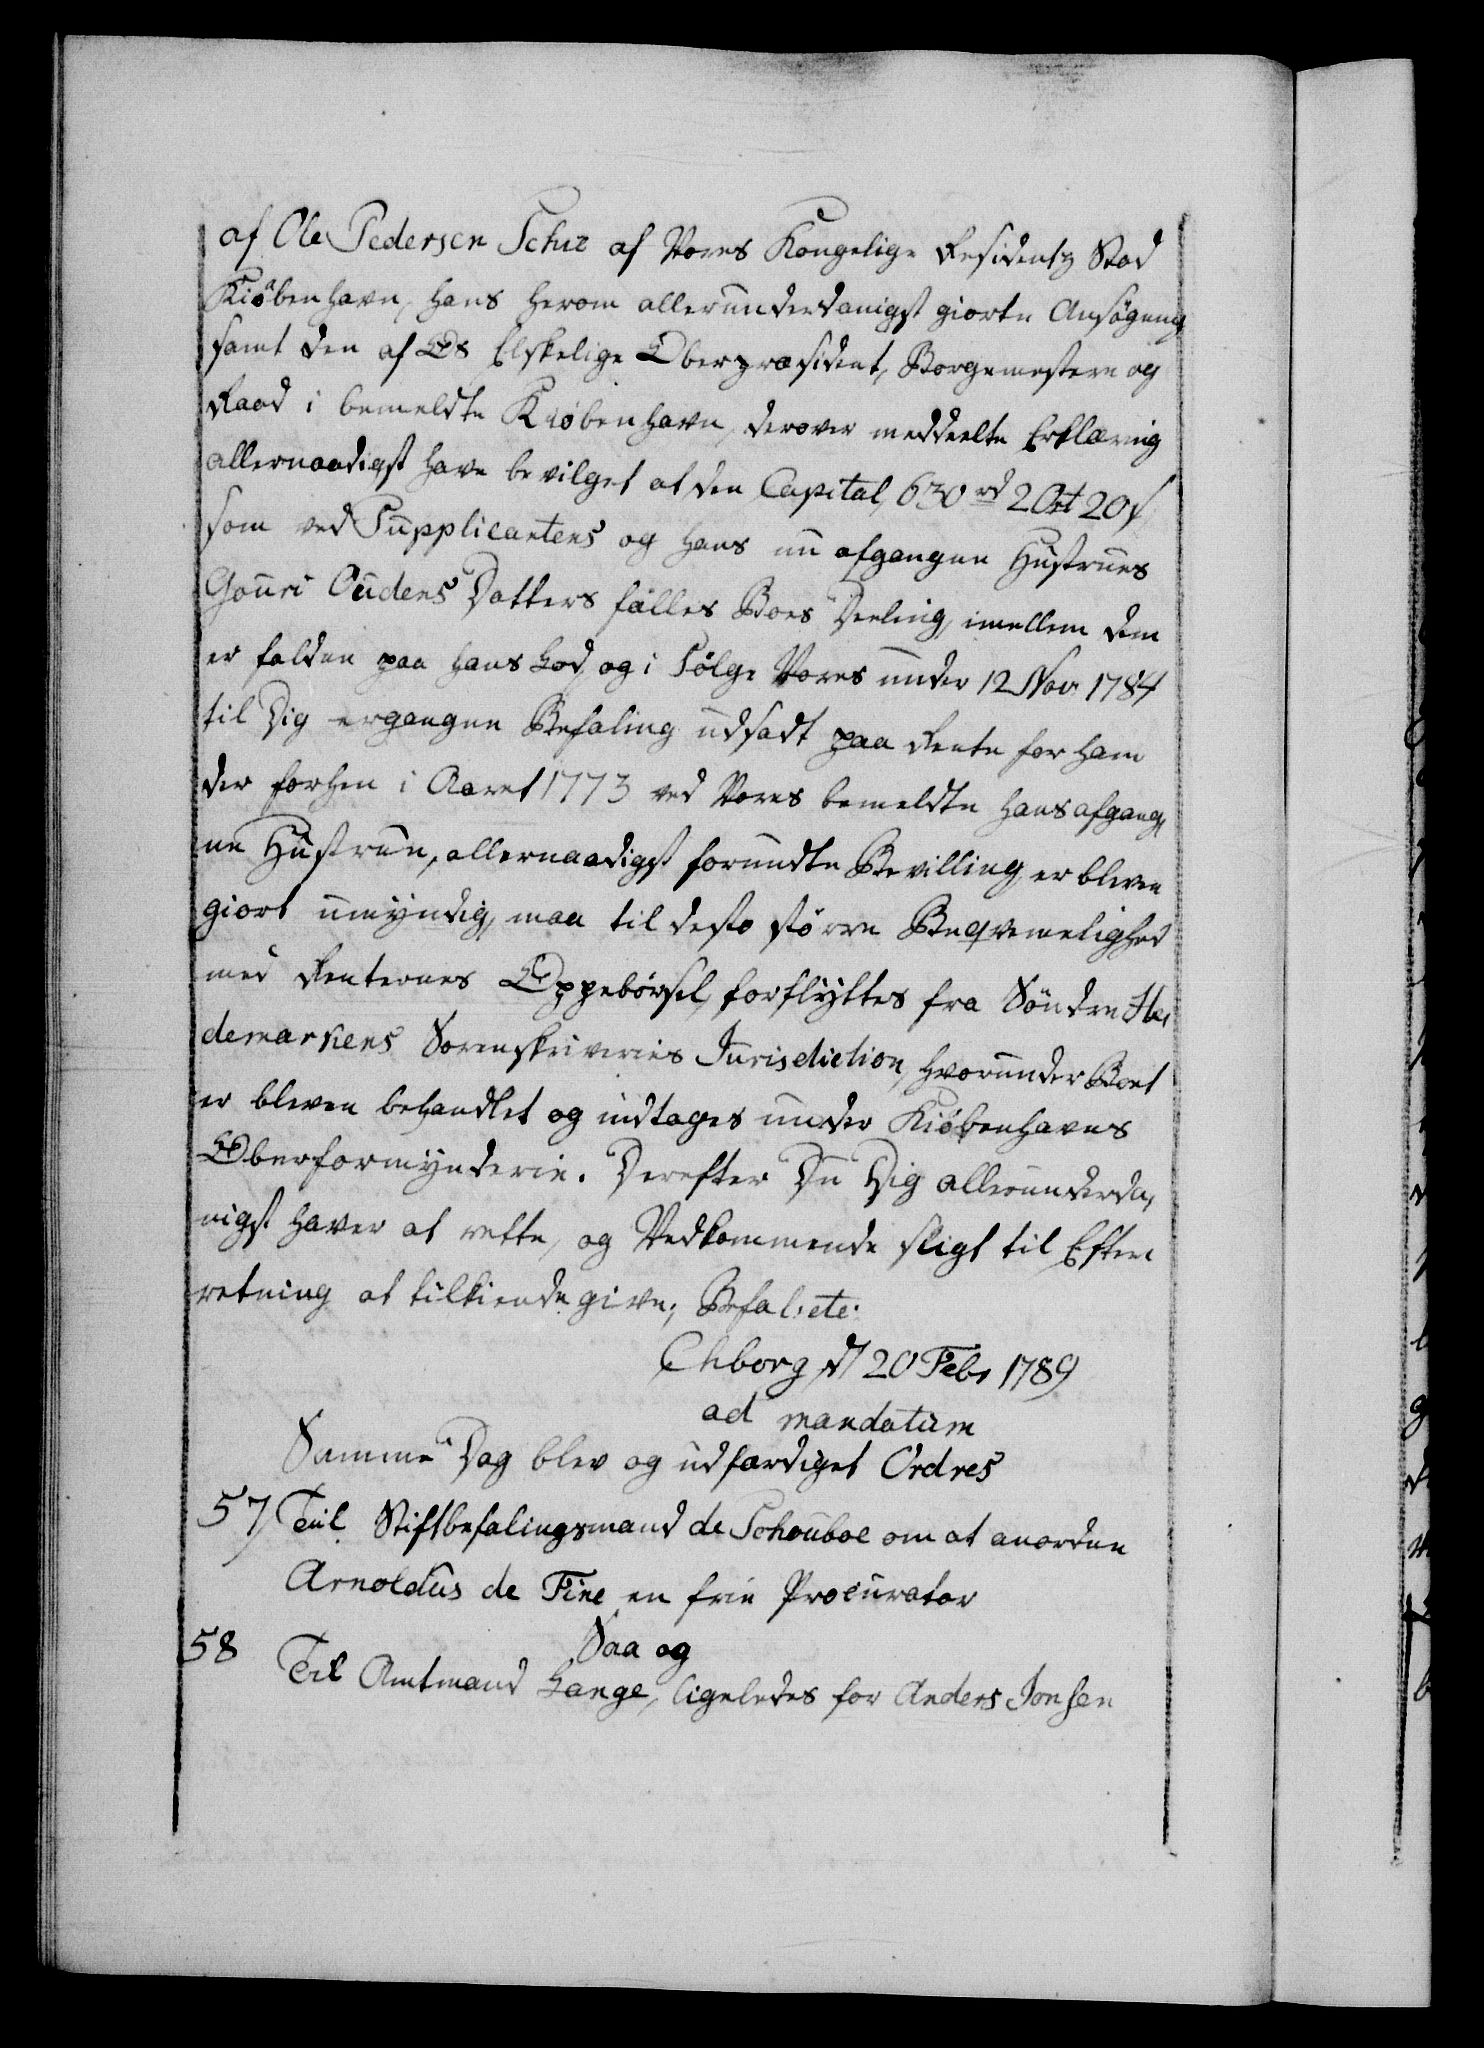 af Ole Pedersen Schie af Vores Kongelige Residentz Stad
Kiöbenhavn, hans herom allerunderdanigst giorte Ansögning
samt den af Os Elskelige Oberpræsident, Borgemestere og
Raad i bemeldte Kiöbenhavn, derover meddeelte Erklæring
allernaadigst have bevilget at den Capital, 630 rd 2 Ort 20 s
som ved Supplicantens og hans nu afgangne Hustrues
Gouri Oudens Datters fælles Boes Deeling, imellem dem
er falden paa hans Lod, og i Fölge Vores under 12 Nov 1784
til Dig ergangne Befaling udsadt paa Rente for ham
der forhen i Aaret 1773 ved Vores bemeldte hans afgang,
ne Hustrue, allernaadigst forundte Bevilling er bleven
giort umyndig, maa til desto större Beqvemelighed
med Renternes Oppebörsel, forflyttes fra Söndre He,
demarkens Sorenskriveries Jurisdiction, hvorunder Boet
er bleven behandlet og indtages under Kiöbenhavns
Oberformynderie. Derefter Du Dig allerunderda,
nigst haver at rette, og Vedkommende sligt til Efter,
retning at tilkiendegive; Befal: etc:
Chborg d 20 Febr 1789
ad mandatum
Samme Dag blev og udfærdiget Ordres
57 Til Stiftbefalingsmand de Schouboe om at anordne
Arnoldus de Fine en frie Procurator
Saa og
58 Til Amtmand Lange, ligeledes for Anders Jonsen